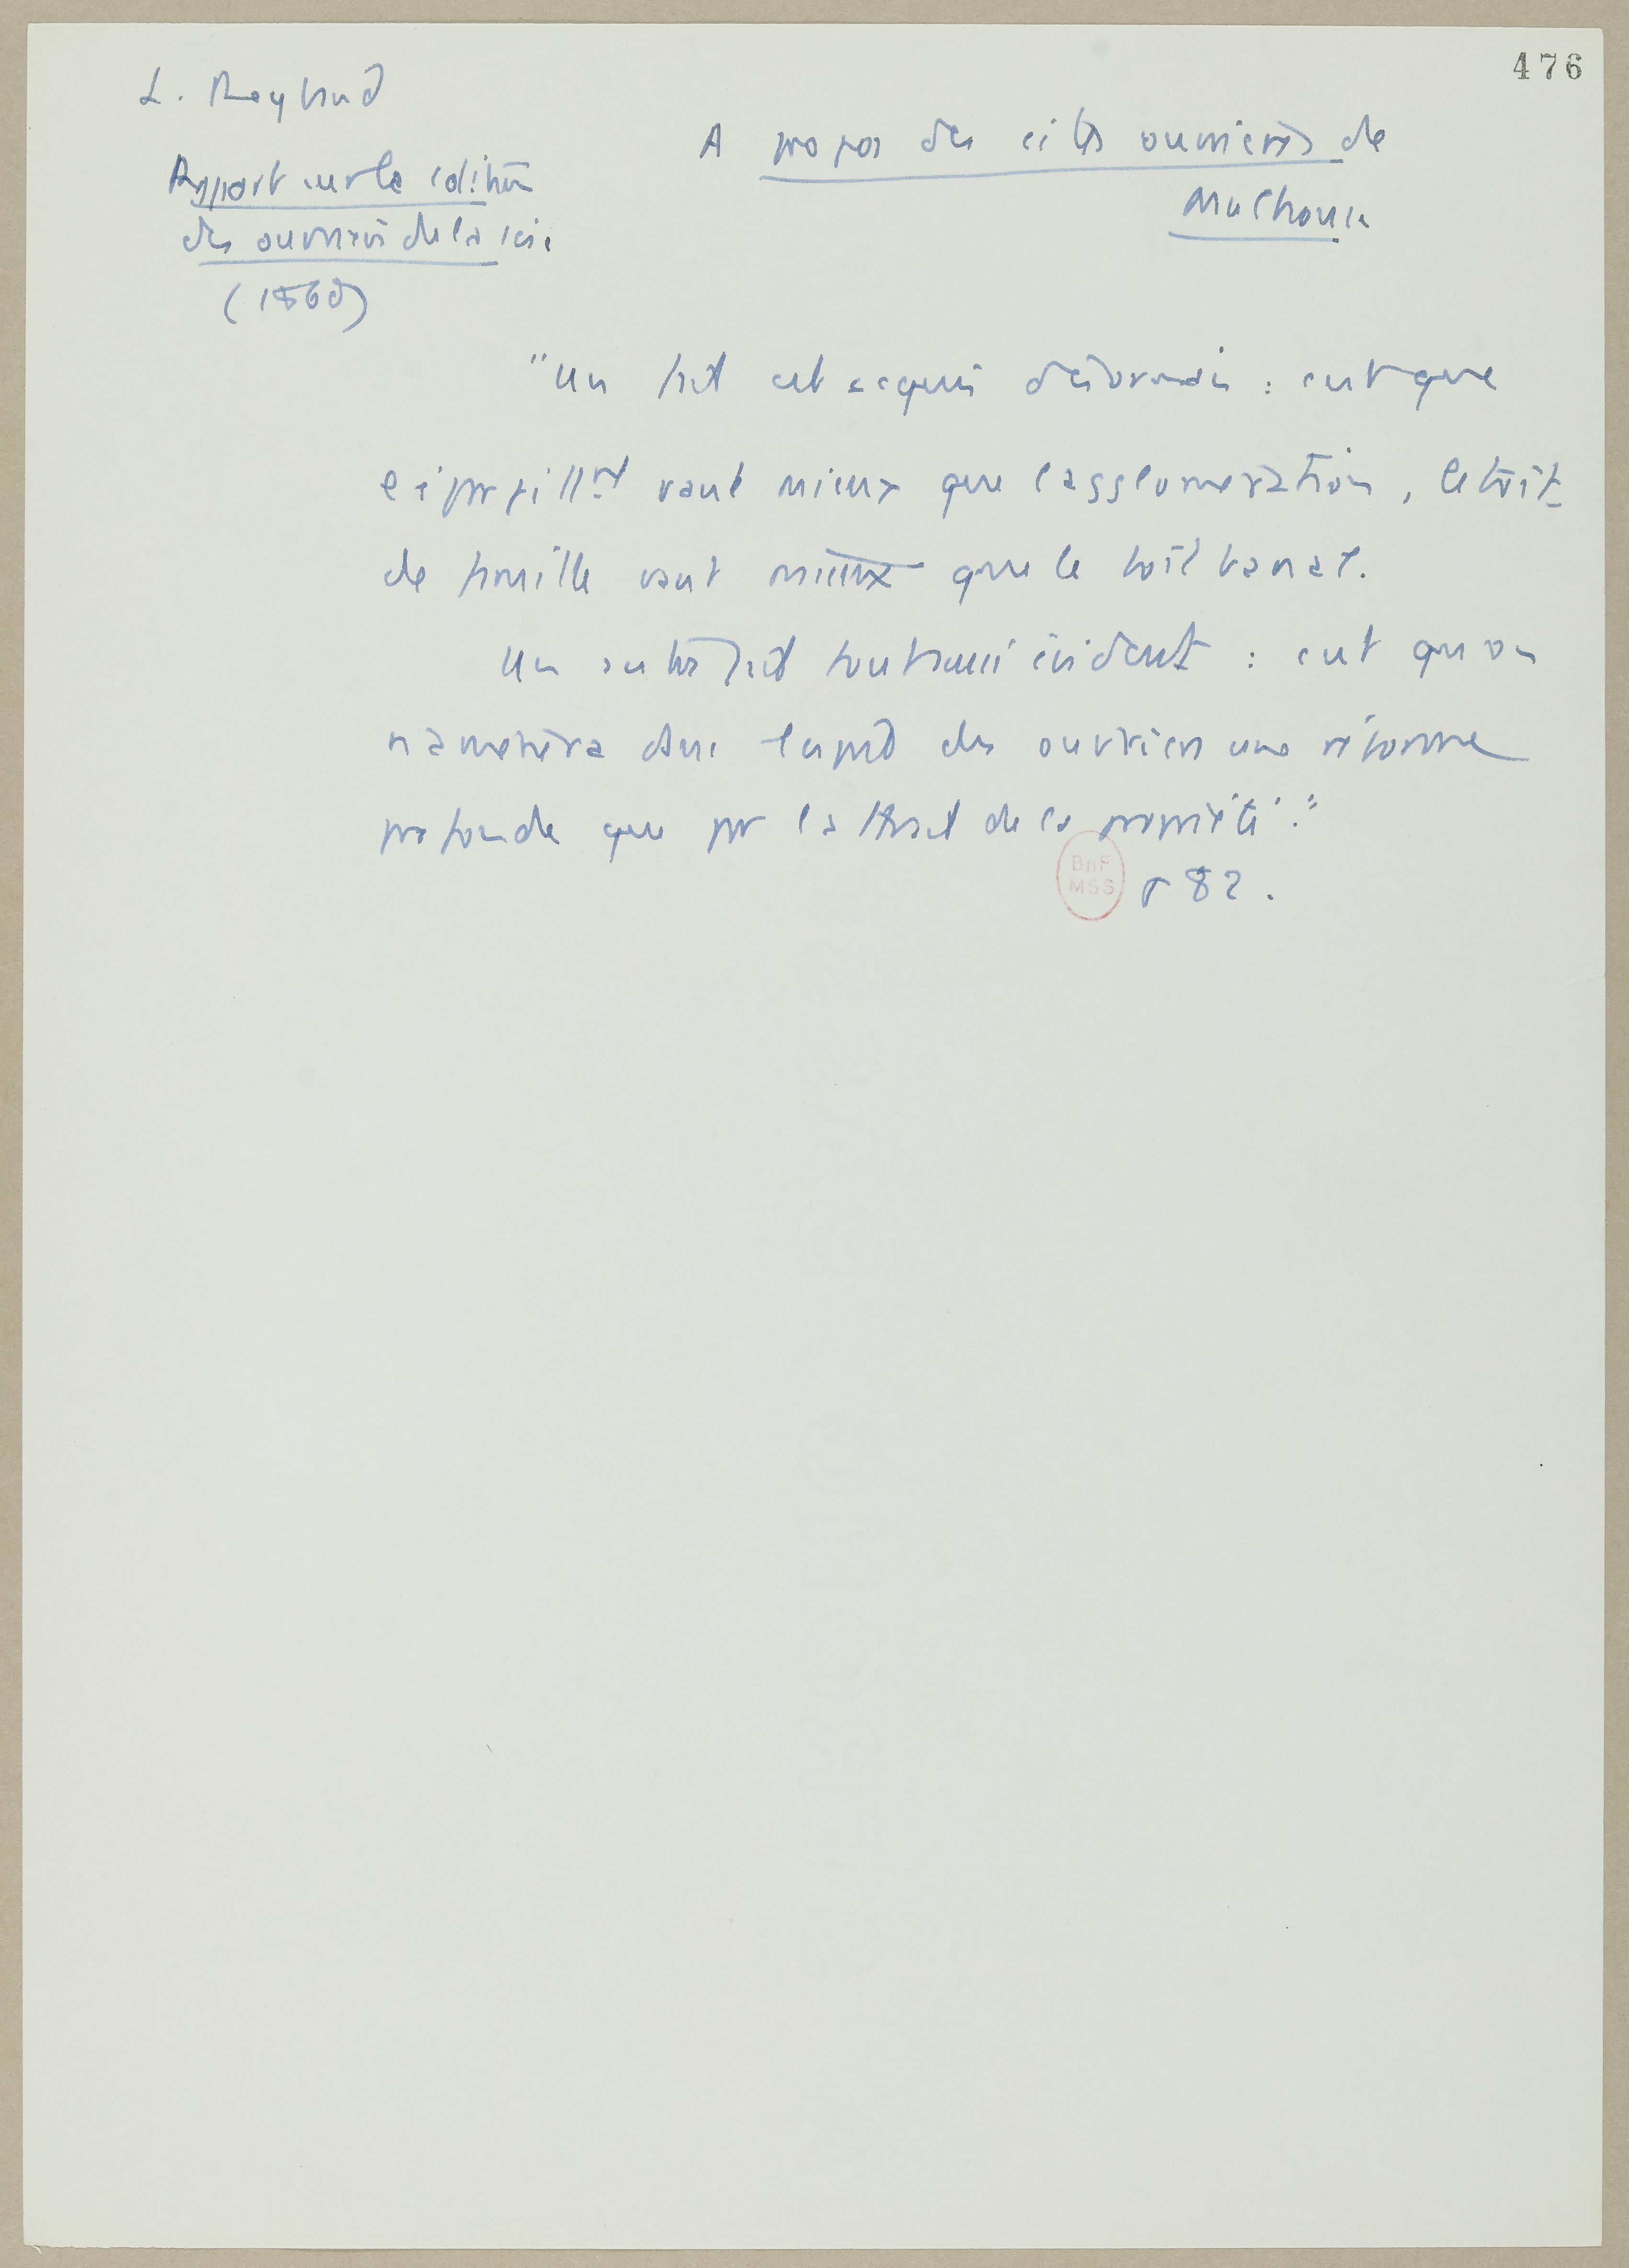 476
L. Reybaud
Rapport sur la cdition
des ouvriers de la soie
(1860)
A propos des cités ouvrières de
Mulhouse
"Un fait est acquis désormais : c'est que
l'éparpillmt vaut mieux que l'agglomération, le toit
de famille vaut mieux que le toit banal.
Un autre fait tout aussi évident : c'est qu'on
n'amènera dans l'esprit des ouvriers une réforme
profonde que par l'attrait de la propriété."
BnF
MSS
p 82.